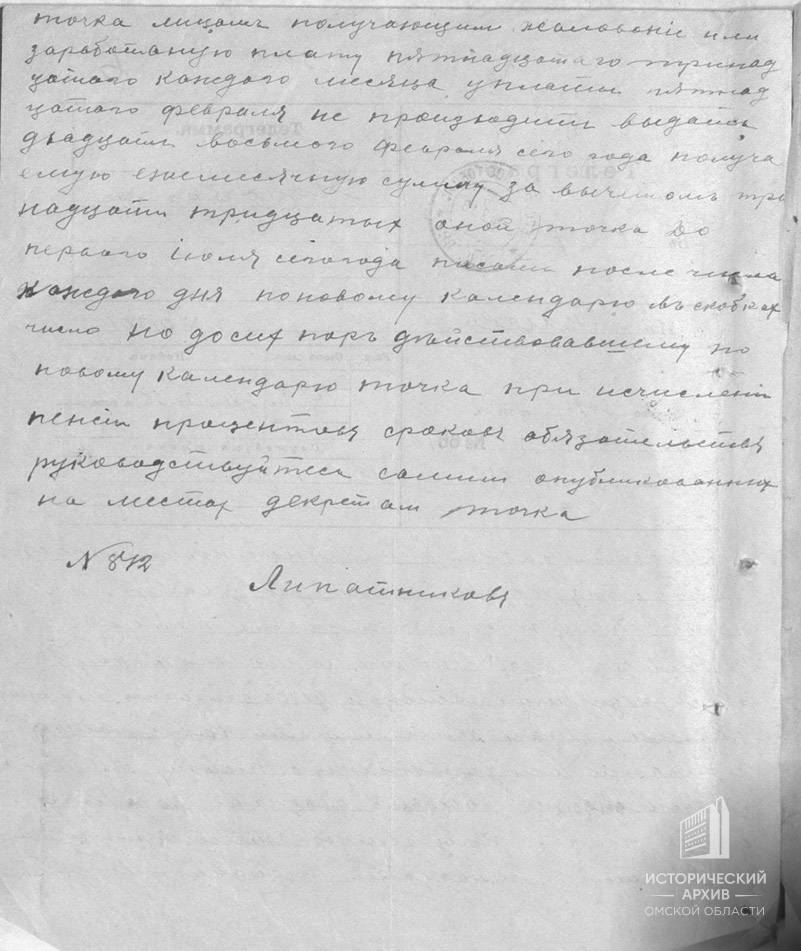 точка лицамъ получающим жалованіе или
заработаную плату пятнадцатаго тринад
цатого каждого месяца уплаты пятнад
цатого февраля не производить выдать
двадцать восьмого февраля сего года получа
емую ежемесячную сумму за вычетомъ три
надцати тридцатых оной точка до
перваго іюля сегогода писати после числа
каждого дня по новому календарю въ скобках
число но досих поръ действовавшему по
новому календарю точка при исчислении
пенсіи процентовъ сроковъ обязательствъ
руководствуйтесь самим опубликованных
на местах декретам точка
N 842
Липатниковъ
Телеграмма.
ИСТОРИЧЕСКИЙ
АРХИВ
ОМСКОЙ ОБЛАСТИ